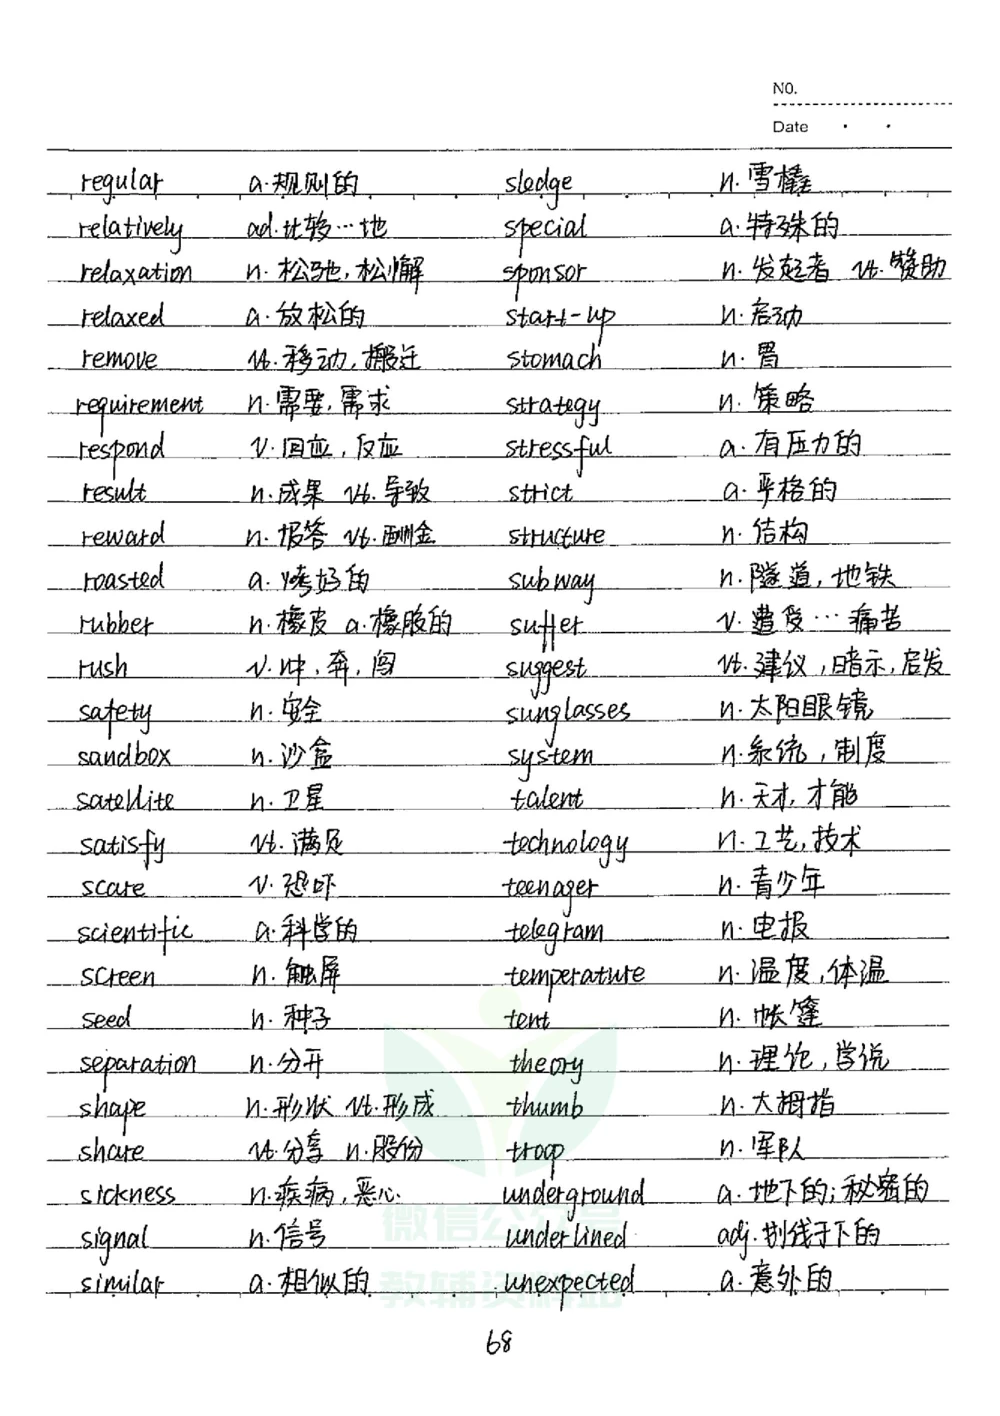 NO.
Date
regular a.规则的 sledge n.雪橇
relatively ad.比较…地 special a.特殊的
relaxation n.松弛,松懈 sponsor n.发起者 vt.赞助
relaxed a.放松的 start-up n.启动
remove vt.移动,搬迁 stomach n.胃
requirement n.需要,需求 strategy n.策略
respond v.回应,反应 stressful a.有压力的
result n.成果 vt.导致 strict a.严格的
reward n.报答 vt.酬金 structure n.结构
roasted a.烤好的 subway n.隧道,地铁
rubber n.橡皮 a.橡胶的 suffer v.遭受…痛苦
rush v.冲,奔,闯 suggest vt.建议,暗示,启发
safety n.安全 sunglasses n.太阳眼镜
sandbox n.沙盒 system n.系统,制度
satellite n.卫星 talent n.天才,才能
satisfy vt.满足 technology n.工艺,技术
scare v.恐吓 teenager n.青少年
scientific a.科学的 telegram n.电报
screen n.触屏 temperature n.温度,体温
seed n.种子 tent n.帐篷
separation n.分开 theory n.理论,学说
shape n.形状 vt.形成 thumb n.大拇指
share vt.分享 n.股份 troop n.军队
sickness n.疾病,恶心 underground a.地下的;秘密的
signal n.信号 underlined adj.划线于下的
similar a.相似的 unexpected a.意外的
微信公众号
教辅资料站
68